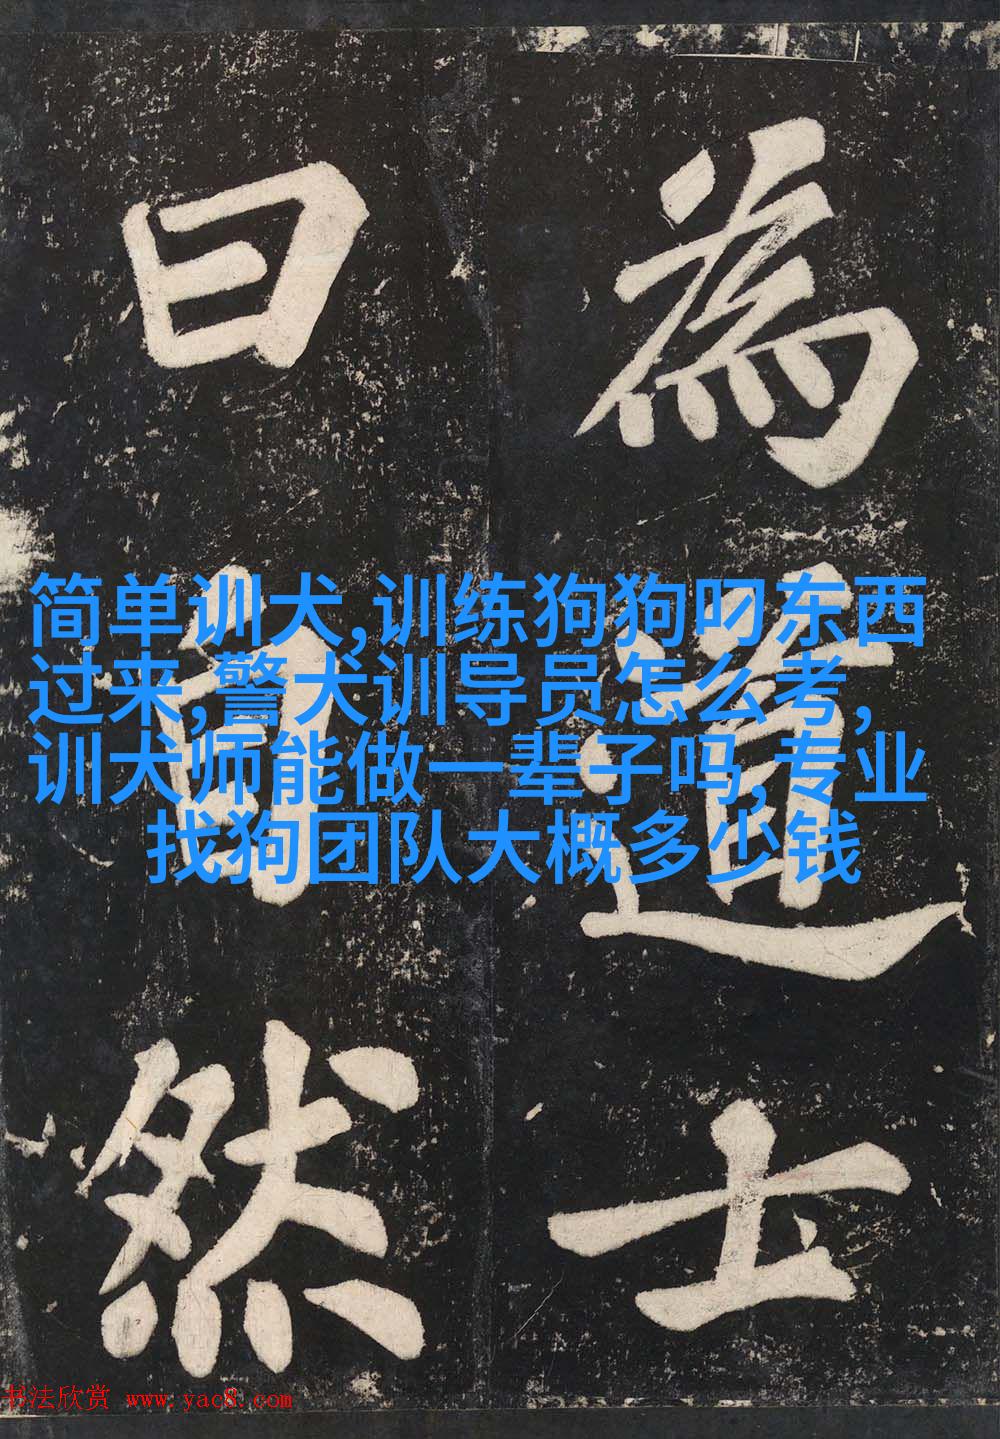 為道士
曰然
简单训犬,训练狗狗叼东西
过来,警犬训导员怎么考,
训犬师能做一辈子吗,专业
找狗团队大概多少钱
书法欣赏 www.yac8.com